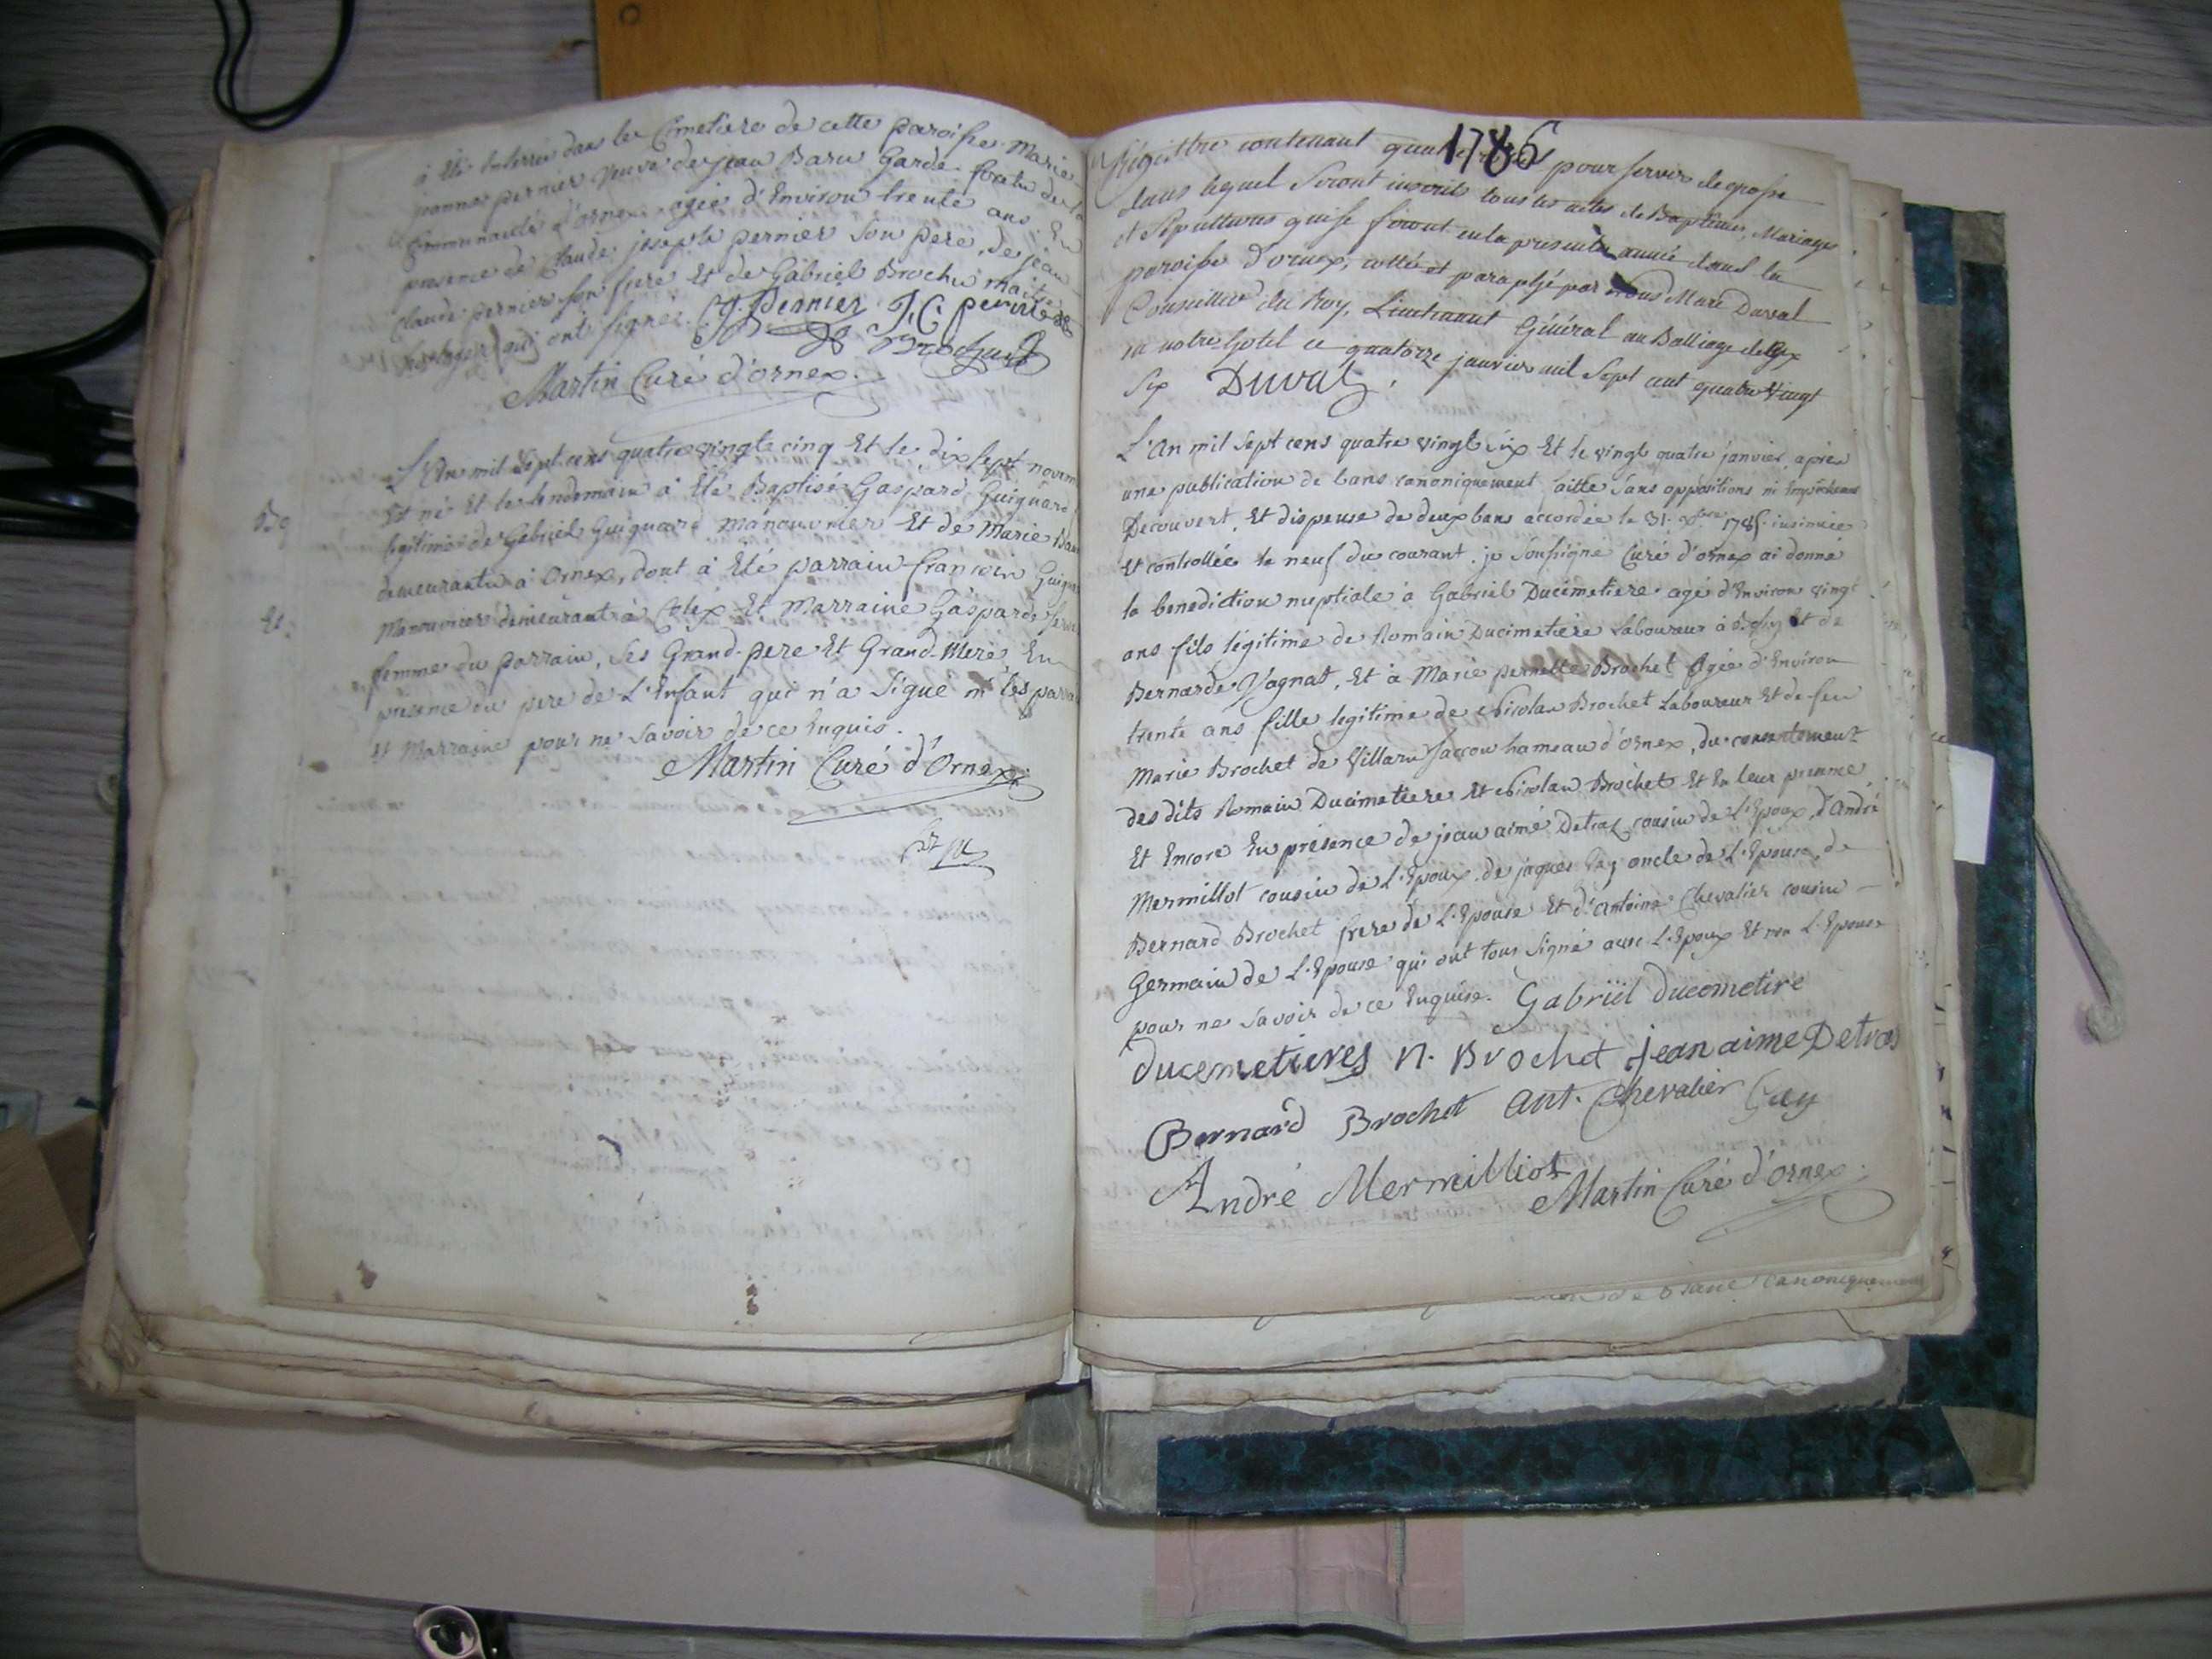 à été enterrée dans le Cimetiere de cette paroisse Marie
jeanne pernier veuve de jean Baru Garde-forêts de la
Communauté d'ornex agée d'Environ trente ans, En
presence de Claude joseph pernier son pere, de jean
Claude pernier son frere Et de Gabriel Brochu maitre
horloger qui ont signés. C.J. Pernier J.C. pernier
Brochu
Martin Curé d'ornex.
L'An mil Sept cens quatre vingt cinq Et le dix sept novem
Est né Et le lendemain à Eté Baptisé Gaspard Guiguard
legitime de Gabriel Guiguard manouvrier Et de Marie
demeurants à Ornex, dont à Eté parrain françois Guigua
Manouvrier demeurant à Colex Et Marraine Gasparde
femme du parrain, Ses Grand-pere Et Grand-Mere, En
présence du pere de L'Enfant qui n'a Signé ni les parra
et Marraine pour ne Savoir de ce Enquis.
Martin Curé d'Ornex.
1786
Régistre contenant pour servir de grosse
dans lequel Seront inscrits tous les actes de Baptêmes, Mariages
et Sépultures qui se feront en la presente année dans la
paroisse d'ornex, cotté et paraphé par nous Marc Duval
Conseiller du Roy, Lieutenant Général au Balliage de Gex
en notre hotel ce quatorze janvier mil Sept cent quatre Vingt
Six Duval.
L'An mil Sept cens quatre vingt six Et le vingt quatre janvier, après
une publication de bans canoniquement faitte Sans oppositions ni Empêchemens
Decouvert, Et dispense de deux bans accordée le 31. Xbre 1785. insinuée
Et controllée le neuf du courant. je Soussigné Curé d'ornex ai donné
la benediction nuptiale à Gabriel Ducimetiere agé d'Environ vingt
ans fils légitime de Romain Ducimetiere Laboureur à Et de
Bernarde Vagnat, Et à Marie pernette Brochet Agée d'Environ
trente ans fille legitime de Nicolas Brochet Laboureur Et de feu
Marie Brochet de Villard Taccon hameau d'ornex, du consentement
desdits Romain Ducimetiere Et Nicolas Brochet Et En leur présence
Et Encore En présence de jean aimé Detraz cousin de L'Epoux, d'André
Mermillot cousin de L'Epoux, de jaques Gay oncle de L'Epouse, de
Bernard Brochet frere de L'Epouse Et d'Antoine Chevalier cousin
Germain de L'Epouse qui ont tous Signé avec L'Epoux Et non L'Epouse
pour ne Savoir de ce Enquise. Gabriel ducometire
ducemetieres n. Brochet jean aime Detras
Bernard Brochet ant. Chevalier Gay
André Mermilliot
Martin Curé d'Ornex.
de bans Canoniquement